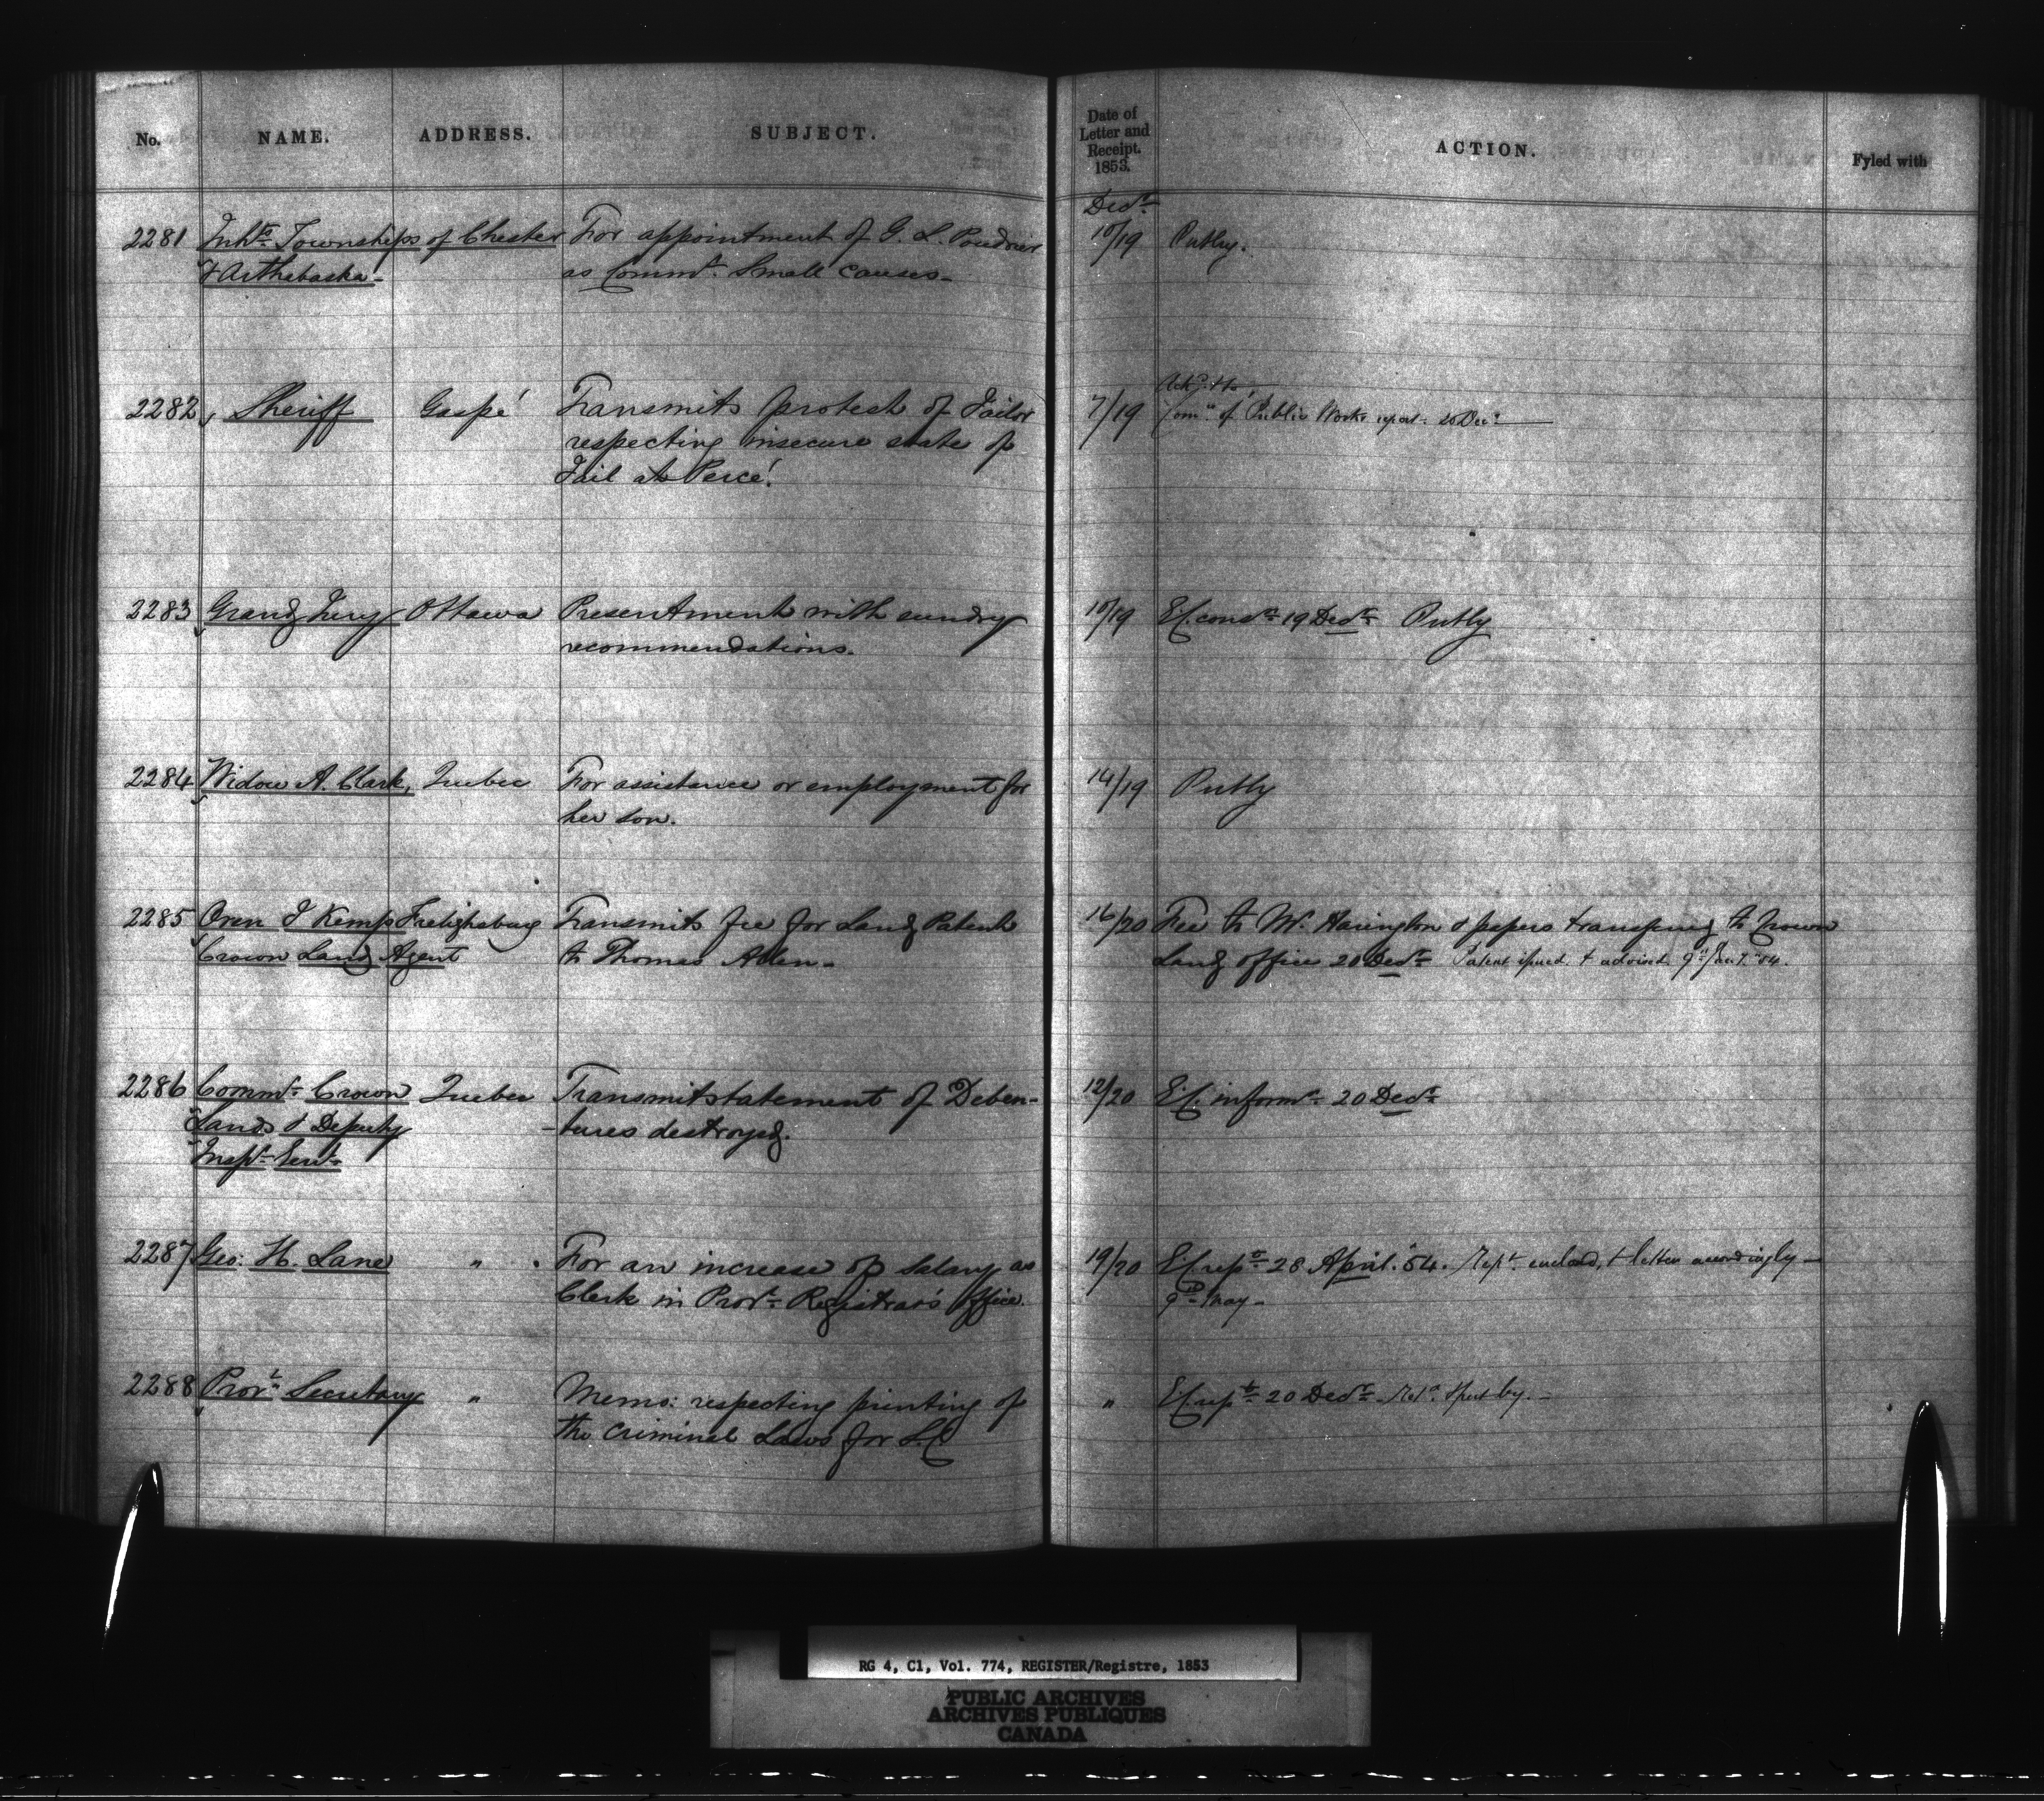 No. NAME. ADDRESS. SUBJECT. Date of Letter and Receipt. 1853. ACTION. Fyled with
Decr.
2281 Inhts. Townships of Chester For appointment of G. L. Poudrier 10/19
& Arthabaska- as Commr. Small causes-
2282, Sheriff Gaspé Transmits protest of Jailor 7/19
respecting insecure state of Comrs. of Public Works report: 20 Decr.
Jail at Percé.
2283 Grand Jury Ottawa Presentment with sundry 10/19 E.C. consn. 19 Decr.
recommendations.
2284 Widow A. Clark, Quebec For assistance or employment for 14/19
her son.
2285 Oren J Kemp Frelighsburg Transmits fee for Land Patent 16/20 Fee to Mr. Harington & papers transferred to Crown
Crown Land Agent to Thomas Allen- Land office 20 Decr. Patent issued & advised 9th Jany. 54.
2286 Commr. Crown Quebec Transmit statement of Deben- 12/20 E.C. informn. 20 Decr.
Lands & Deputy -tures destroyed.
Inspr. Genl.
2287 Geo: H. Lane " For an increase of Salary as 19/20 E.C. rept. 28 April. 54. Rept. enclosed, & letter accordingly-
Clerk in Provl. Registrar's Office. 9th May-
2288 Provl. Secretary " Memo: respecting printing of " E.C. rept. 20 Decr.
the Criminal Laws for L.C
RG 4, C1, Vol. 774, REGISTER/Registre, 1853
PUBLIC ARCHIVES
ARCHIVES PUBLIQUES
CANADA